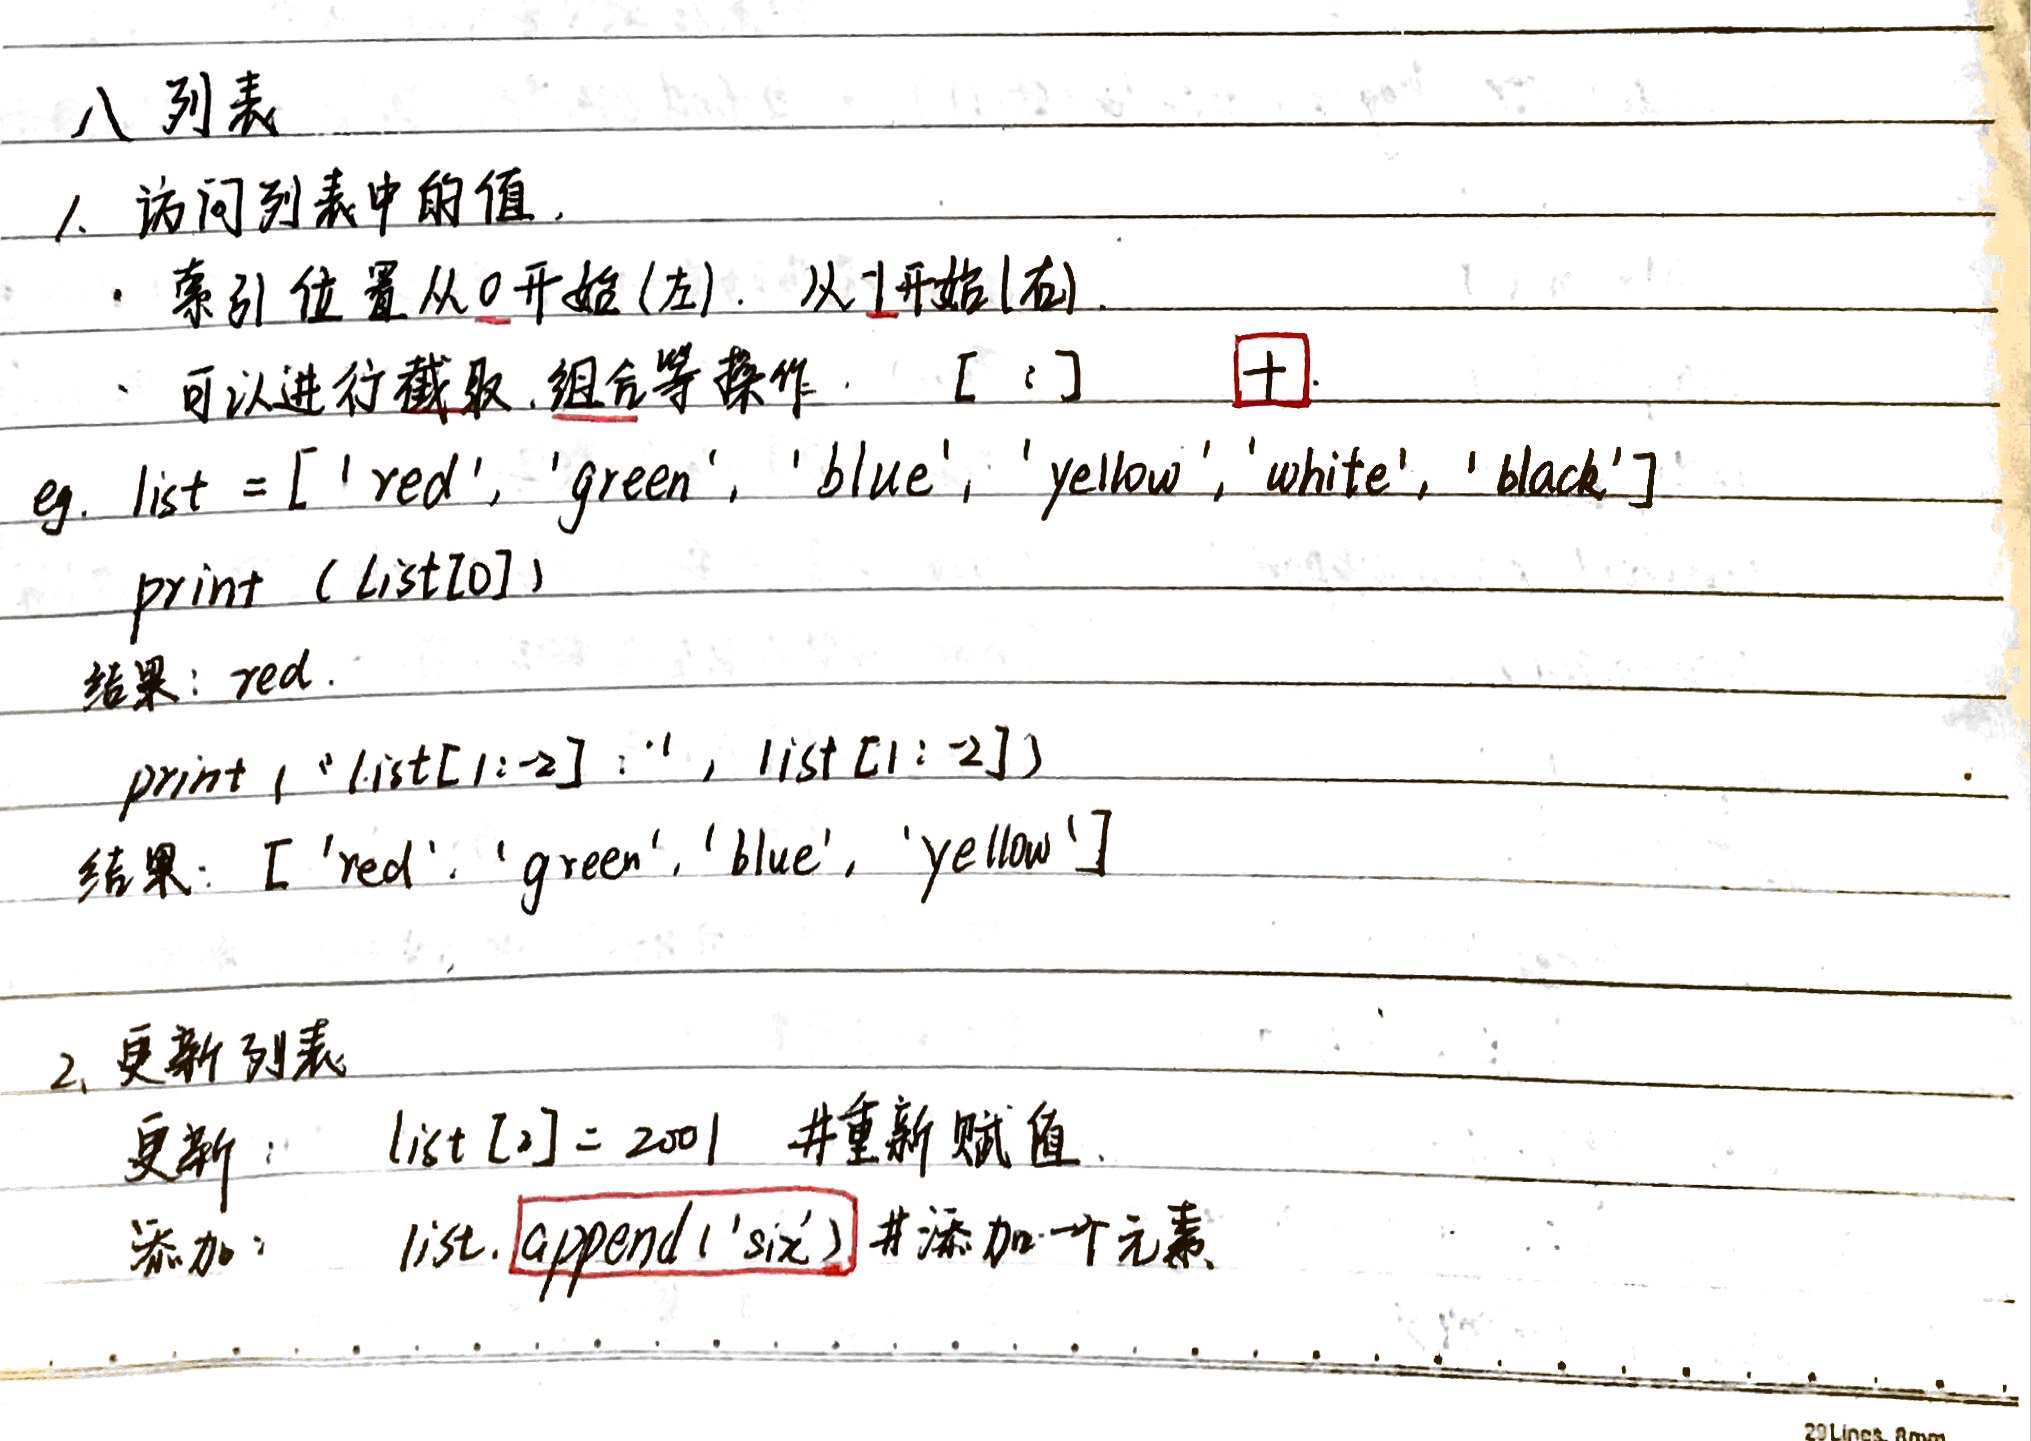 八 列表
1. 访问列表中的值.
· 索引位置从0开始(左). 从-1开始(右).
· 可以进行截取.组合等操作. [ : ] +.
eg. list = ['red', 'green', 'blue', 'yellow', 'white', 'black']
print (list[0])
结果: red.
print ("list[1:-2] : ", list[1:-2])
结果: ['red', 'green', 'blue', 'yellow']
2. 更新列表
更新: list[2] = 2001 #重新赋值.
添加: list.append('six') #添加一个元素
20Lines. 8mm